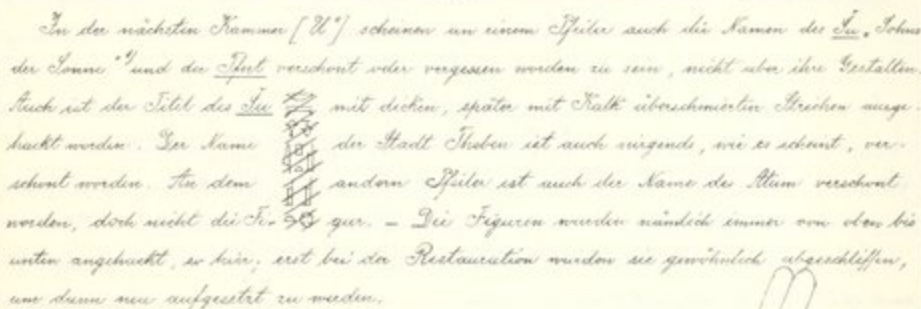 In der nächsten Kammer [U⁰] scheinen an einem Pfeiler auch die Namen des Su „Sohns
der Sonne“ und der Tfnt verschont oder vergessen worden zu sein, nicht aber ihre Gestalten.
Auch ist der Titel des Su mit dicken, später mit Kalk überschmierten Strichen ausge
hackt worden. Der Name der Stadt Theben ist auch nirgends, wie es scheint, ver-
schont worden. An dem andern Pfeiler ist auch der Name des Atum verschont
worden, doch nicht die Fi- gur. – Die Figuren wurden nämlich immer von oben bis
unten angehackt, so hier; erst bei der Restauration wurden sie gewöhnlich abgeschliffen,
um dann neu aufgesetzt zu werden.